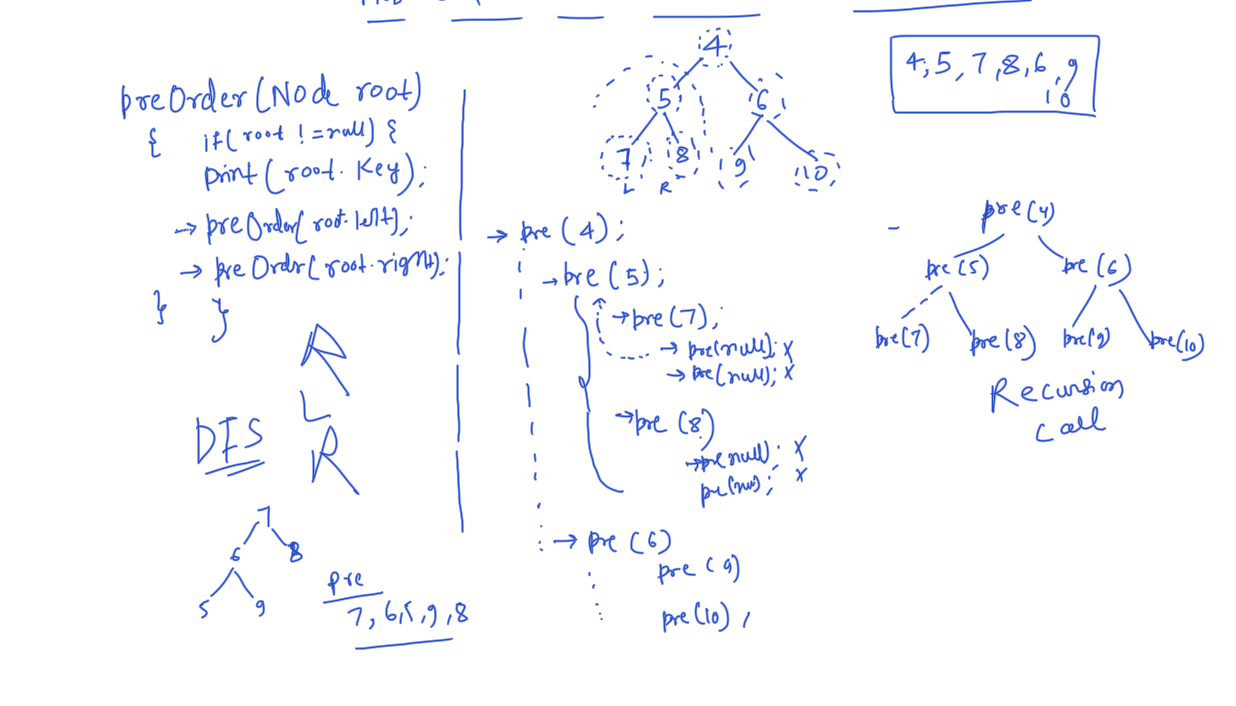 preOrder(Node root)
{ if(root != null) {
print(root.key);
→ preOrder(root.left);
→ preOrdr(root.right);
} }
R
L
R
DFS
7
6 8
5 9
pre
7, 6, 5, 9, 8
4
5 6
7 8 9 10
L R
→ pre(4);
→ pre(5);
→ pre(7);
→ pre(null); x
→ pre(null); x
→ pre(8)
→ pre null); x
pre(nul); x
→ pre(6)
pre(9)
pre(10),
4, 5, 7, 8, 6, 9
10
pre(4)
pre(5) pre(6)
pre(7) pre(8) pre(9) pre(10)
Recursion
call